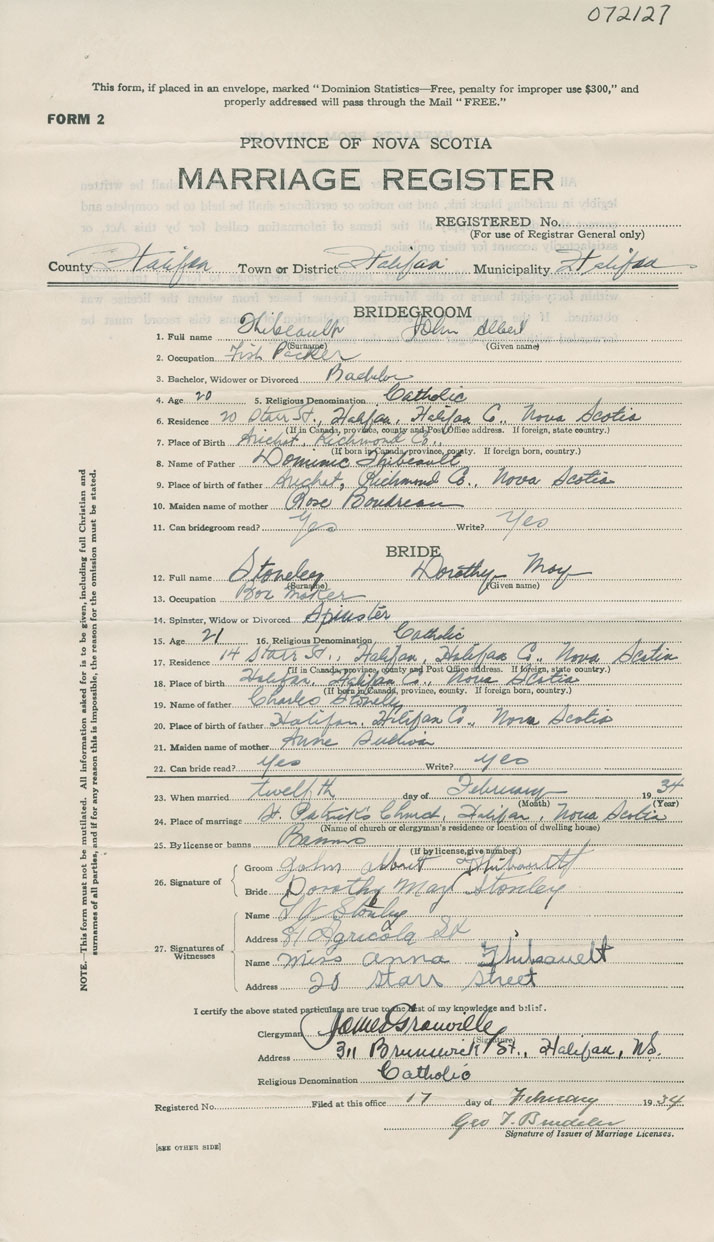 072127
This form, if placed in an envelope, marked "Dominion Statistics—Free, penalty for improper use $300," and
properly addressed will pass through the Mail "FREE."
FORM 2
PROVINCE OF NOVA SCOTIA
MARRIAGE REGISTER
REGISTERED No.
(For use of Registrar General only)
County Halifax Town or District Halifax Municipality Halifax
BRIDEGROOM
1. Full name Thibeault John Albert
(Surname) (Given name)
2. Occupation Fish Packer
3. Bachelor, Widower or Divorced Bachelor
4. Age 20 5. Religious Denomination Catholic
6. Residence 20 Starr St., Halifax, Halifax Co., Nova Scotia
(If in Canada, province, county and Post Office address. If foreign, state country.)
7. Place of Birth Arichat, Richmond Co.,
(If born in Canada, province, county. If foreign born, country.)
8. Name of Father Dominic Thibeault
9. Place of birth of father Arichat, Richmond Co., Nova Scotia
10. Maiden name of mother Rose Boudreau
11. Can bridegroom read? Yes Write? Yes
BRIDE
12. Full name Stoneley Dorothy May
(Surname) (Given name)
13. Occupation Box Maker
14. Spinster, Widow or Divorced Spinster
15. Age 21 16. Religious Denomination Catholic
17. Residence 14 Starr St., Halifax, Halifax Co., Nova Scotia
(If in Canada, province, county and Post Office address. If foreign, state country.)
18. Place of birth Halifax, Halifax Co., Nova Scotia
(If born in Canada, province, county. If foreign born, country.)
19. Name of father Charles Stoneley
20. Place of birth of father Halifax, Halifax Co., Nova Scotia
21. Maiden name of mother Anne
22. Can bride read? yes Write? yes
23. When married twelfth day of February 1934
(Month) (Year)
24. Place of marriage St. Patrick's Church, Halifax, Nova Scotia
(Name of church or clergyman's residence or location of dwelling house)
25. By license or banns Banns
(If by license, give number.)
26. Signature of
Groom John Albert Thibault
Bride Dorothy May Stonley
27. Signatures of
Witnesses
Name Stonley
Address 81 Agricola St
Name Miss Anna Thibauelt
Address 20 Starr Street
I certify the above stated particulars are true to the best of my knowledge and belief.
Clergyman James Granville
(Signature)
Address 311 Brunswick St., Halifax, N.S.
Religious Denomination Catholic
Registered No. Filed at this office 17 day of February 1934
Geo
Signature of Issuer of Marriage Licenses.
[SEE OTHER SIDE]
NOTE.—This form must not be mutilated. All information asked for is to be given, including full Christian and
surnames of all parties, and if for any reason this is impossible, the reason for the omission must be stated.